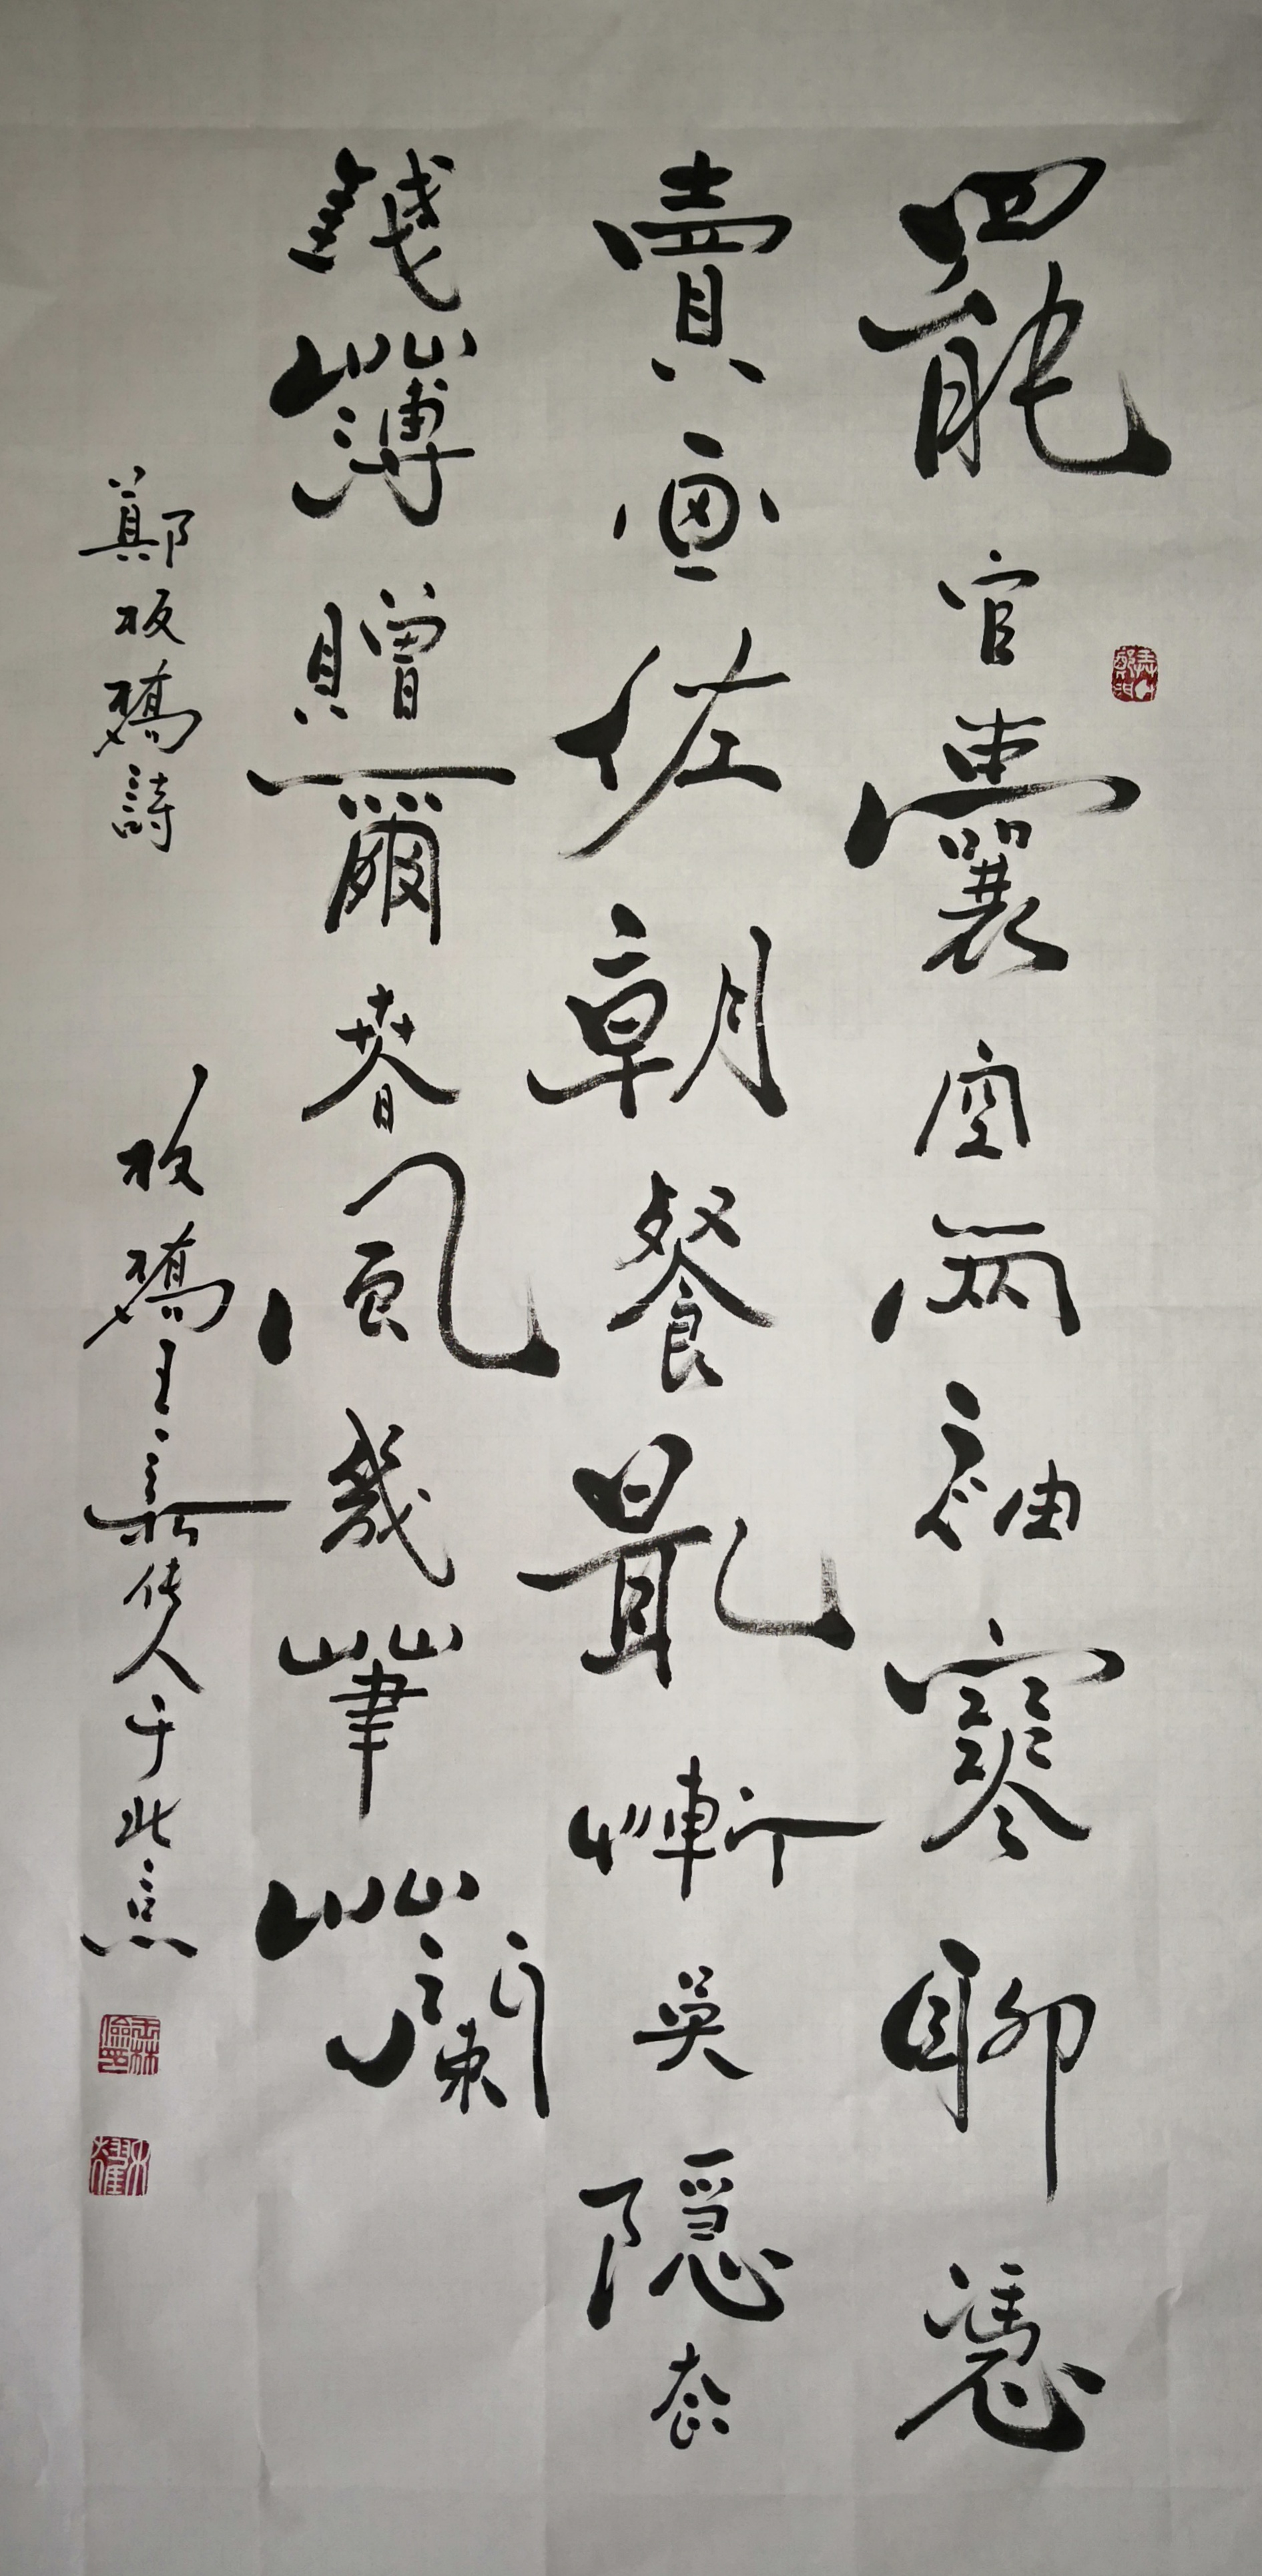 罷官囊空兩袖寒聊憑
賣画佐朝餐最慚吳隱奁
錢薄贈爾春風幾筆蘭
鄭板橋詩 板橋传人于北京